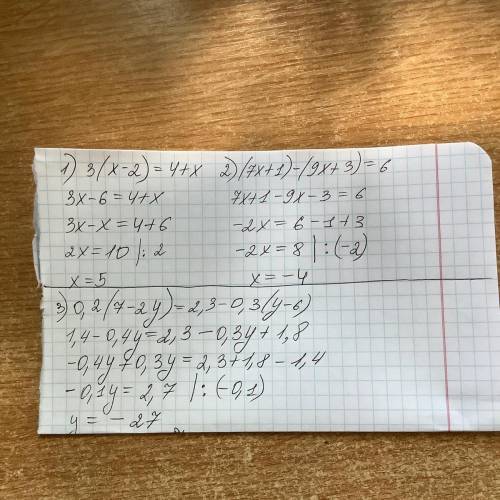 1) 3(x-2)=4+x
3x-6=4+x
3x-x=4+6
2x=10 |:2
x=5
2) (7x+1)-(9x+3)=6
7x+1-9x-3=6
-2x=6-1+3
-2x=8 |:(-2)
x=-4
3) 0,2(7-2y)=2,3-0,3(y-6)
1,4-0,4y=2,3-0,3y+1,8
-0,4y+0,3y=2,3+1,8-1,4
-0,1y=2,7 |:(-0,1)
y=-27